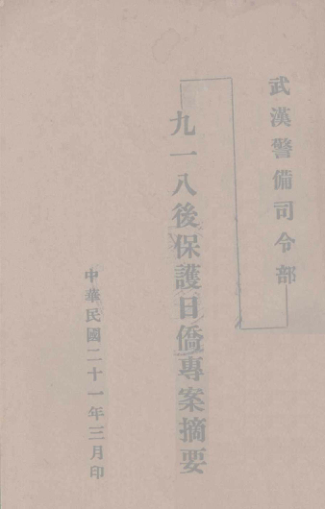 武漢警備司令部
九一八後保護日僑專案摘要
中華民國二十一年三月印